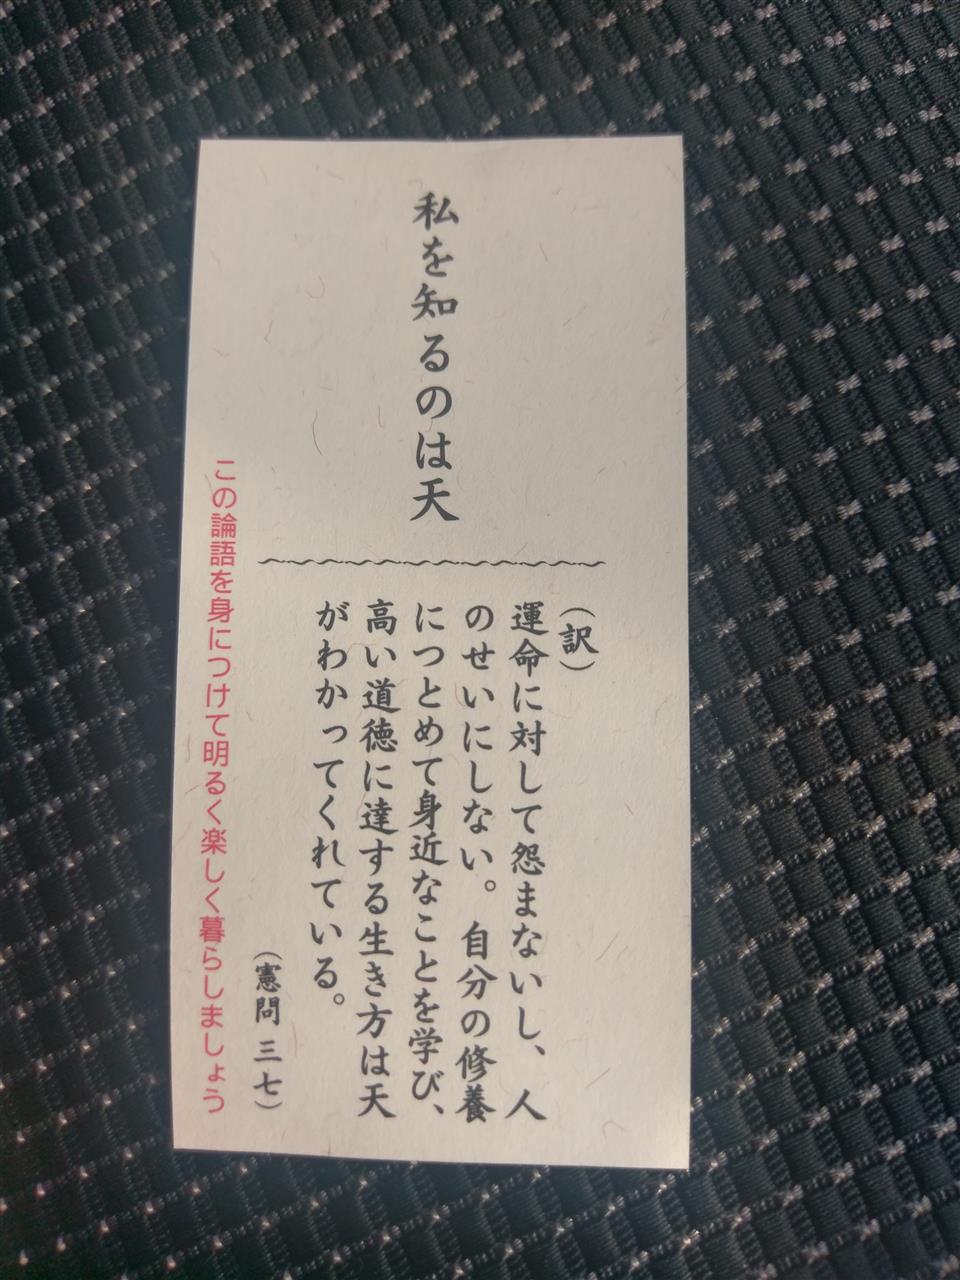 私を知るのは天
（訳）
運命に対して怨まないし、人
のせいにしない。自分の修養
につとめて身近なことを学び、
高い道徳に達する生き方は天
がわかってくれている。
（憲問 三七）
この論語を身につけて明るく楽しく暮らしましょう